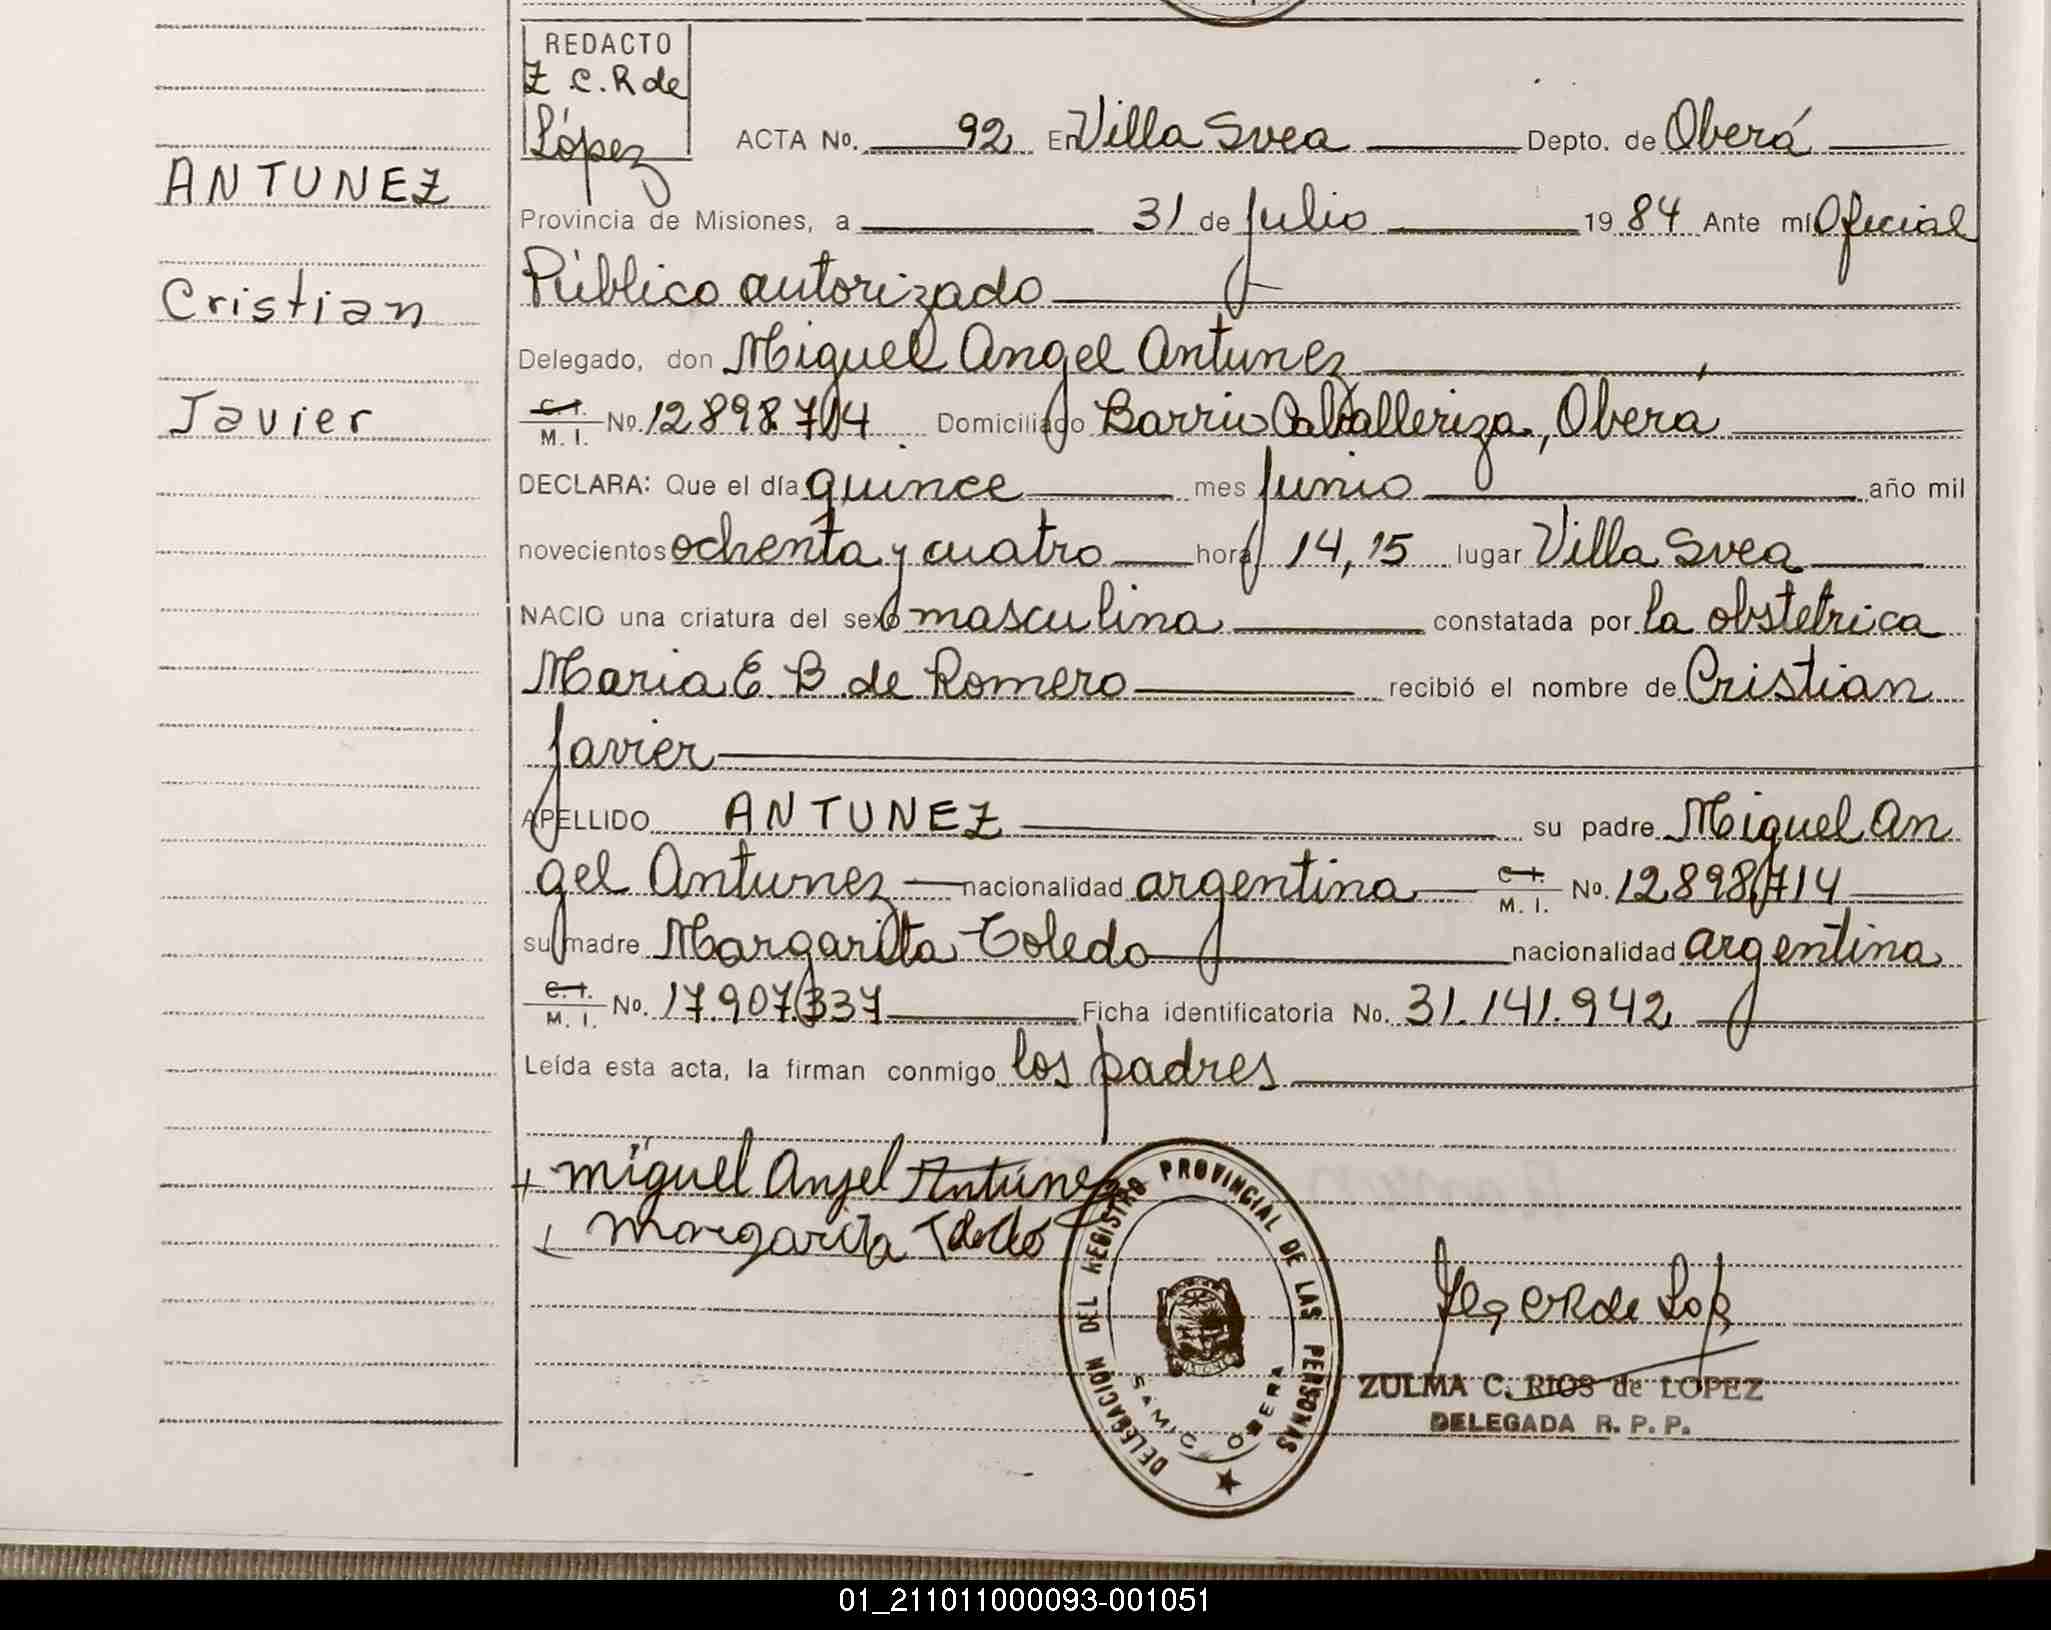 REDACTO
Z C.R de
López
ACTA No. 92 En Villa Svea Depto. de Oberá
ANTUNEZ
Provincia de Misiones, a 31 de julio 1984 Ante mí Oficial
Público autorizado
Cristian
Delegado, don Miguel Angel Antunez
Javier
C. I. M. I. No. 12.898.714 Domiciliado Barrio Caballeriza, Oberá
DECLARA: Que el día quince mes junio año mil
novecientos ochenta y cuatro hora 14,15 lugar Villa Svea
NACIO una criatura del sexo masculina constatada por la obstetrica
Maria E. B. de Romero recibió el nombre de Cristian
Javier
APELLIDO ANTUNEZ su padre Miguel An
gel Antunez nacionalidad argentina C. I. M. I. No. 12.898.714
su madre Margarita Toledo nacionalidad argentina
C. I. M. I. No. 17.907.337 Ficha identificatoria No. 31.141.942
Leída esta acta, la firman conmigo los padres
+ Miguel Anjel Antúnez
+ Margarita Toledo
DELEGACION DEL REGISTRO PROVINCIAL DE LAS PERSONAS
SAMIC OBERA
MISIONES
ZULMA C. RIOS de LOPEZ
DELEGADA R. P. P.
01_211011000093-001051